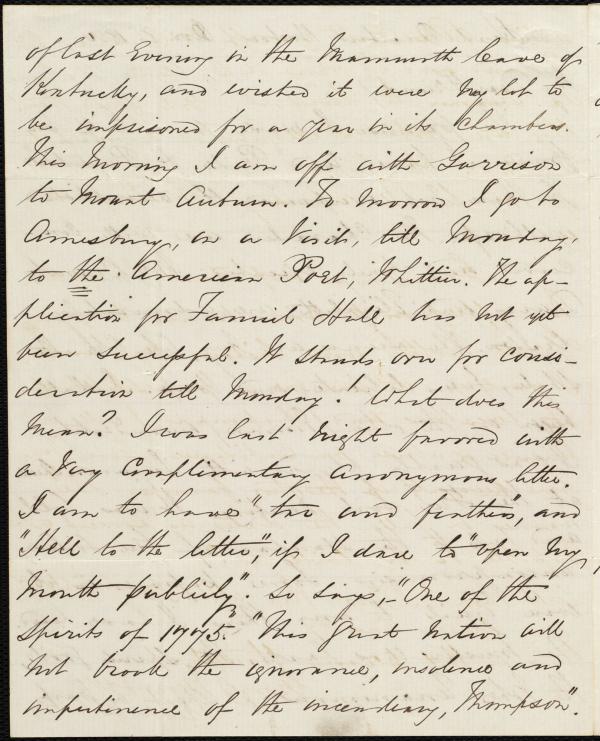 of last Evening in the Mammoth Cave of
Kentucky, and wished it were my lot to
be imprisoned for a year in its chambers.
This Morning I am off with Garrison
to Mount Auburn. To morrow I go to
Amesbury, on a Visit, till Monday,
to the American Poet, Whittier. The ap-
plication for Faneuil Hall has not yet
been successful. It stands over for consi-
deration till Monday! What does this
mean? I was last night favored with
a very complimentary anonymous letter.
I am to have "tar and feathers", and
"Hell to the letter", if I dare to "open my
mouth publicly". So says, – "One of the
Spirits of 1775." "This great nation will
not brook the ignorance, insolence and
impertinence of the incendiary, Thompson".